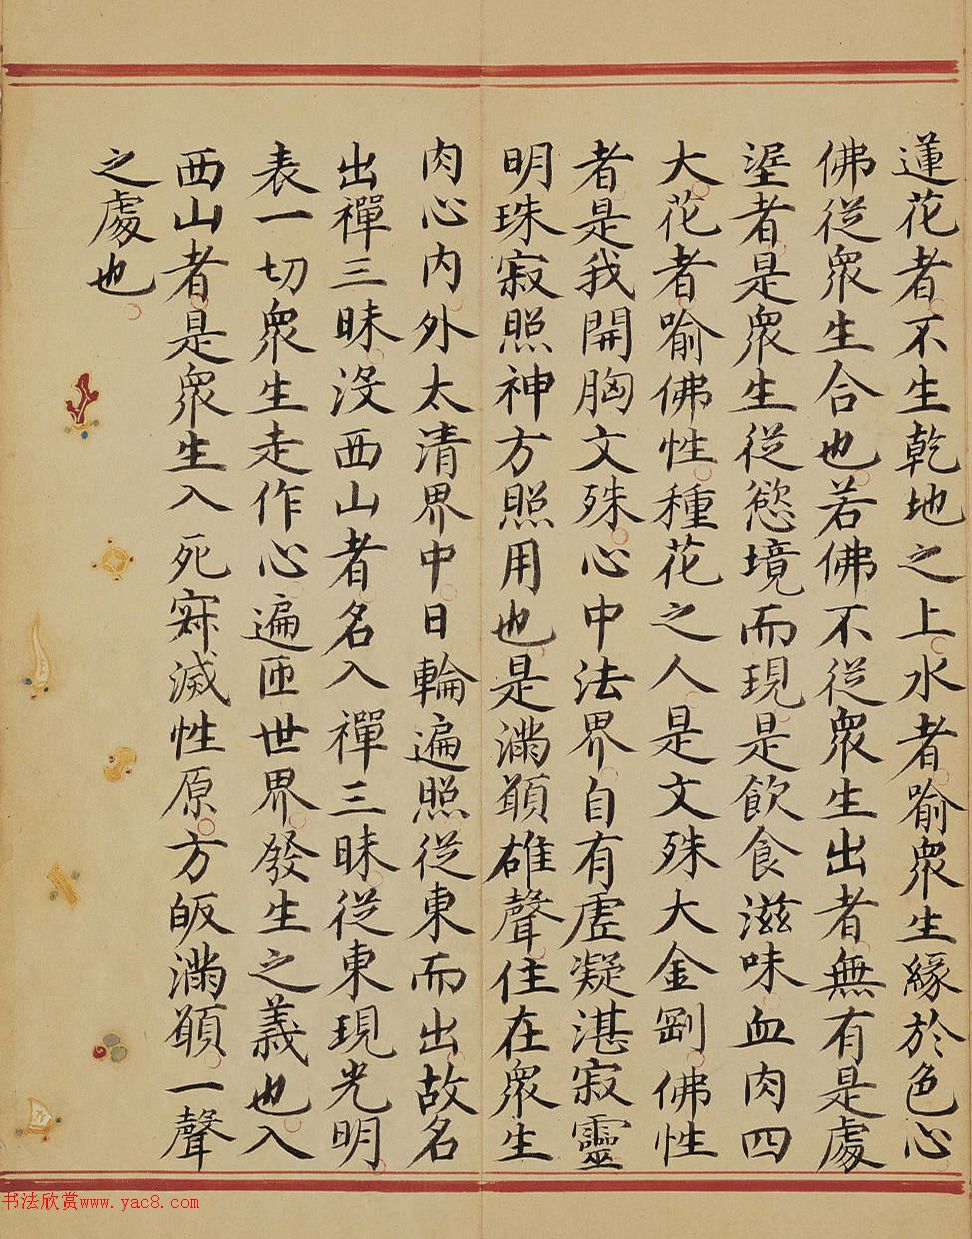 蓮花者不生乾地之上水者喻衆生緣於色心
佛從衆生合也若佛不從衆生出者無有是處
埿者是衆生從慾境而現是飲食滋味血肉四
大花者喻佛性種花之人是文殊大金剛佛性
者是我開胸文殊心中法界自有虛凝湛寂靈
明珠寂照神方照用也是滿願雄聲住在衆生
肉心內外太清界中日輪遍照從東而出故名
出禪三昧沒西山者名入禪三昧從東現光明
表一切衆生走作心遍匝世界發生之義也入
西山者是衆生入死寂滅性原方皈滿願一聲
之處也
书法欣赏www.yac8.com